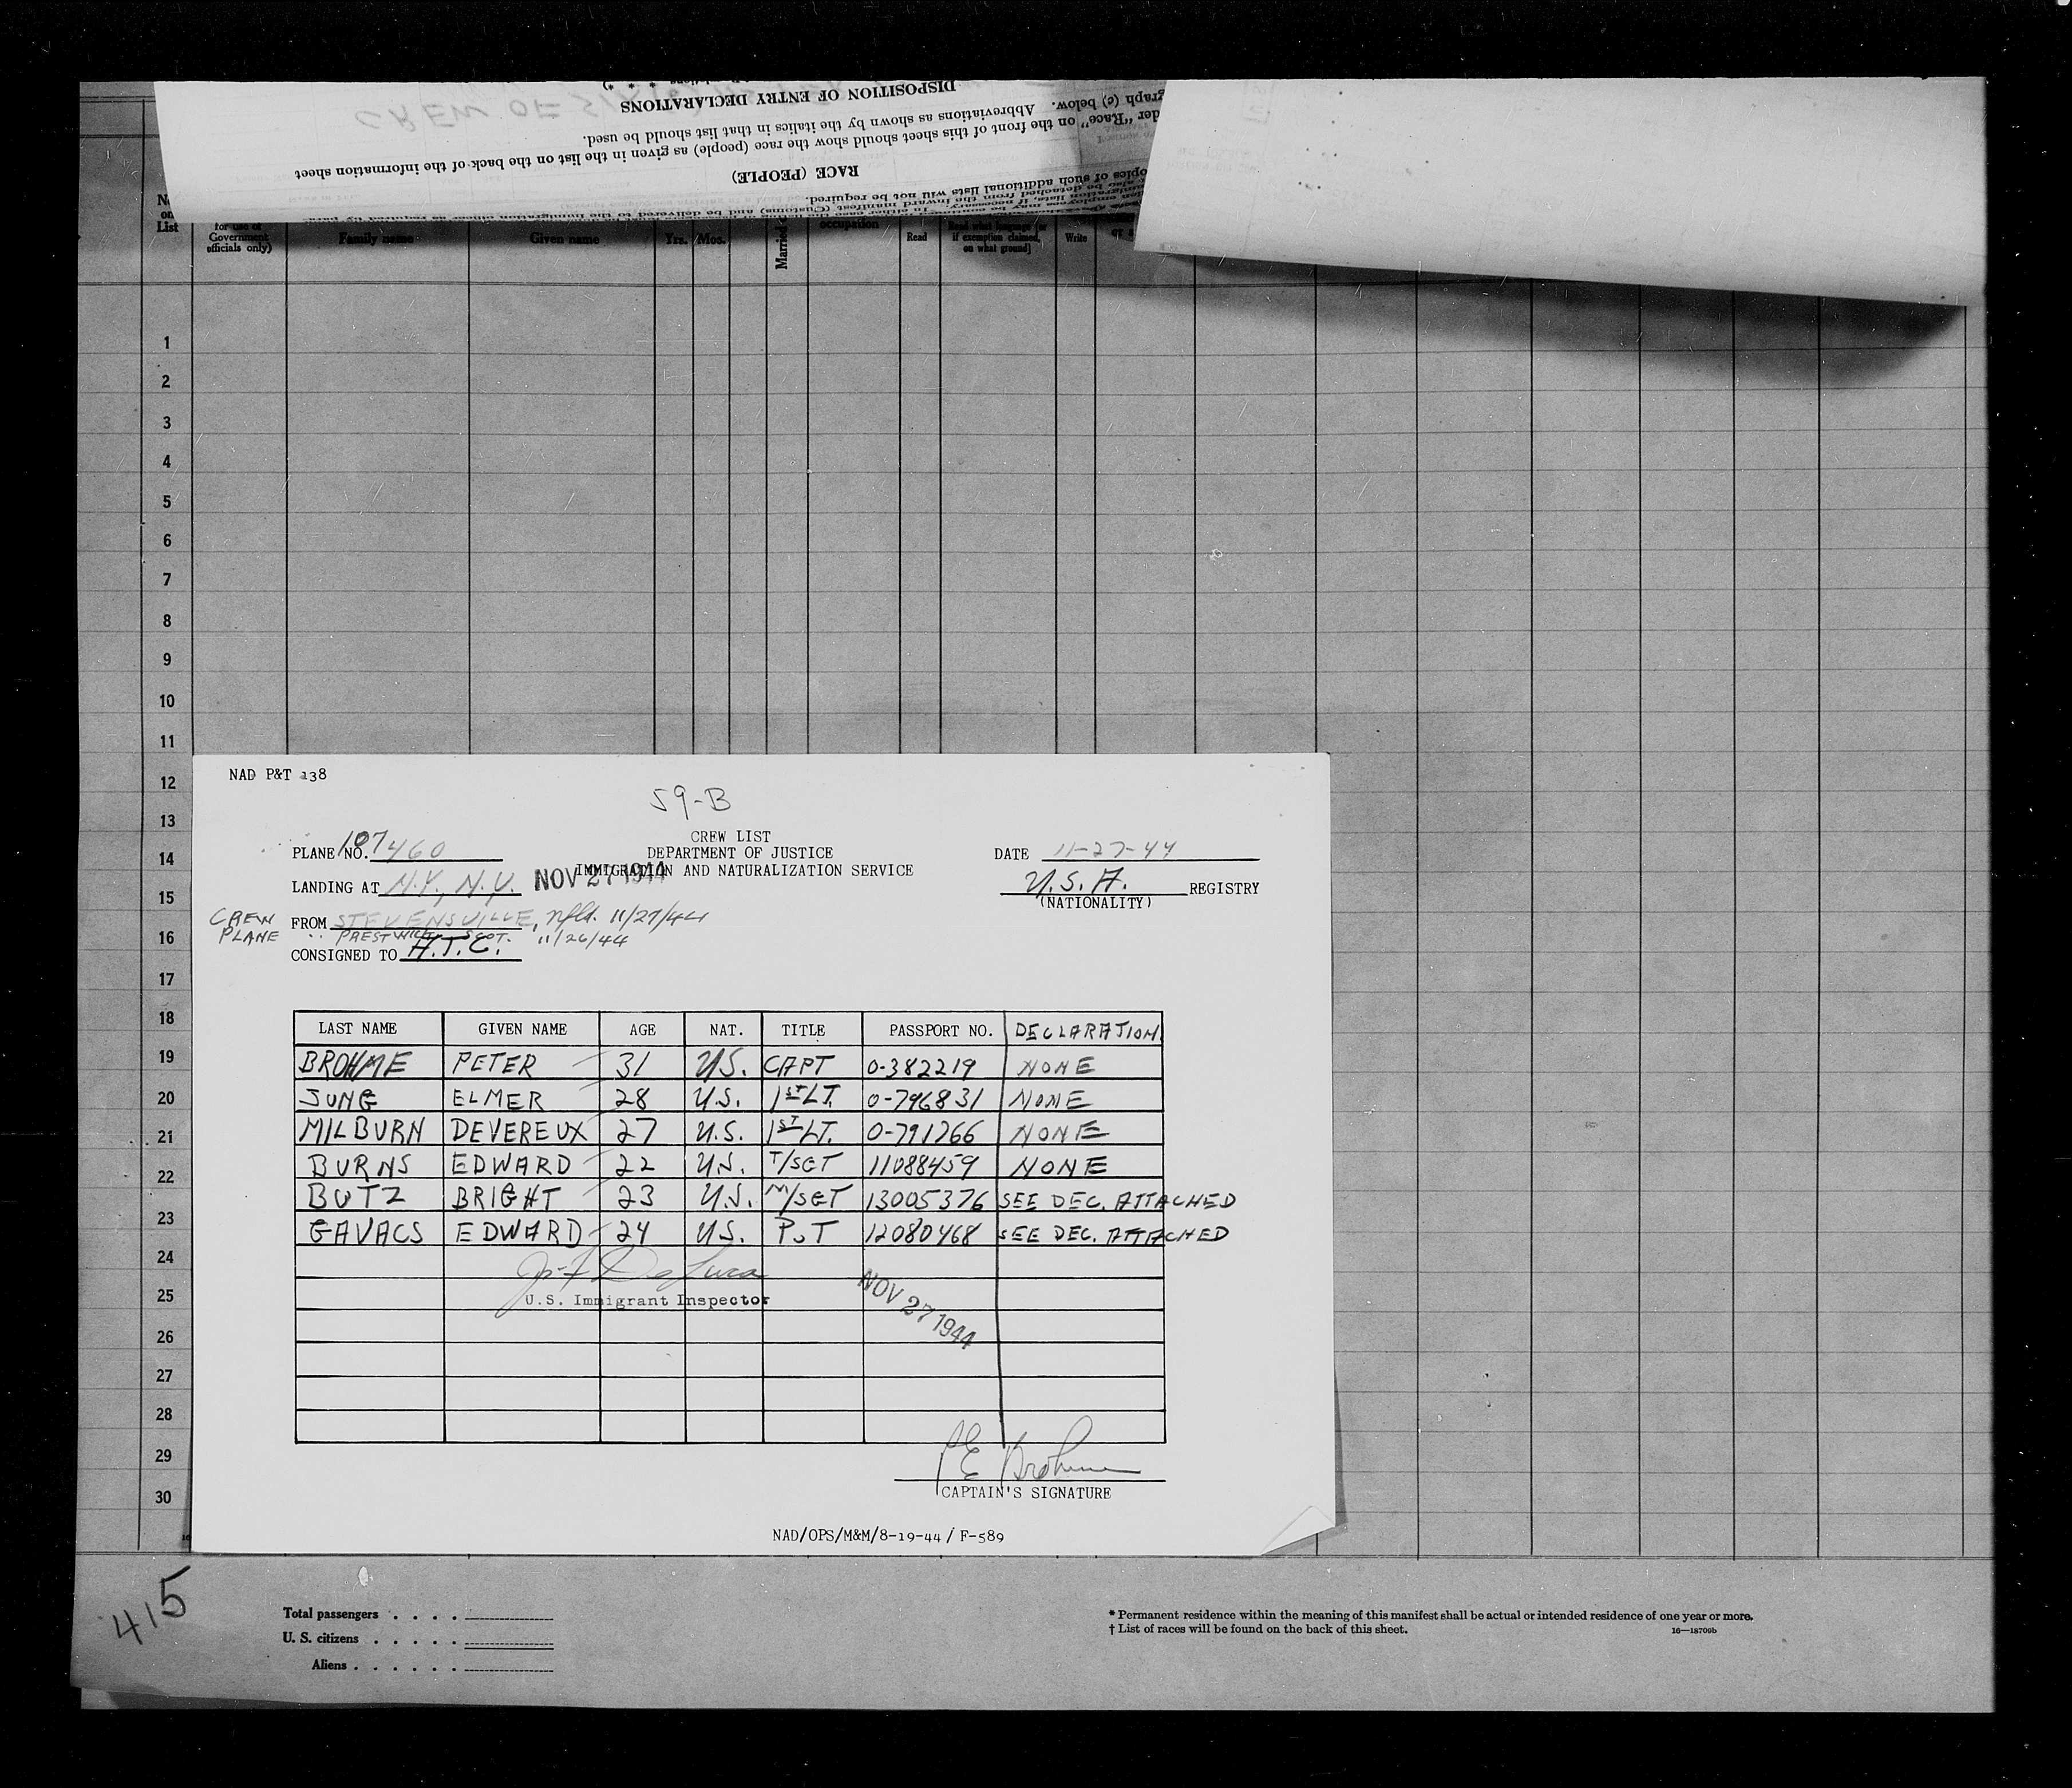 DISPOSITION OF ENTRY DECLARATIONS
graph (c) below. Abbreviations as shown by the italics in that list should be used.
der "Race" on the front of this sheet should show the race (people) as given in the list on the back of the information sheet
RACE (PEOPLE)
opies of such additional lists will not be required.
on List
for use of Government officials only)
Family name
Given name
Yrs. Mos.
Married
occupation
Read
Read what language [or if exemption claimed, on what ground]
Write
1
2
3
4
5
6
7
8
9
10
11
12
13
14
15
16
17
18
19
20
21
22
23
24
25
26
27
28
29
30
NAD P&T 138
59-B
CREW LIST
PLANE NO. 107460 DEPARTMENT OF JUSTICE DATE 11-27-44
IMMIGRATION AND NATURALIZATION SERVICE
LANDING AT N.Y., N.Y. NOV 27 1944 U.S.A. REGISTRY
(NATIONALITY)
CREW FROM STEVENSVILLE, Nfld. 11/27/44
PLANE " PRESTWICK SCOT. 11/26/44
CONSIGNED TO A.T.C.
LAST NAME GIVEN NAME AGE NAT. TITLE PASSPORT NO. DECLARATION
BROHME PETER 31 U.S. CAPT 0-382219 NONE
JUNG ELMER 28 U.S. 1ST LT. 0-796831 NONE
MILBURN DEVEREUX 27 U.S. 1ST LT. 0-791266 NONE
BURNS EDWARD 22 U.S. T/SGT 11088459 NONE
BUTZ BRIGHT 23 U.S. M/SGT 13005376 SEE DEC. ATTACHED
GAVACS EDWARD 24 U.S. PVT 12080468 SEE DEC. ATTACHED
U.S. Immigrant Inspector
NOV 27 1944
P E Brohme
CAPTAIN'S SIGNATURE
NAD/OPS/M&M/8-19-44/ F-589
415
Total passengers . . . .
U. S. citizens . . . . .
Aliens . . . . . .
* Permanent residence within the meaning of this manifest shall be actual or intended residence of one year or more.
† List of races will be found on the back of this sheet. 16—18706b